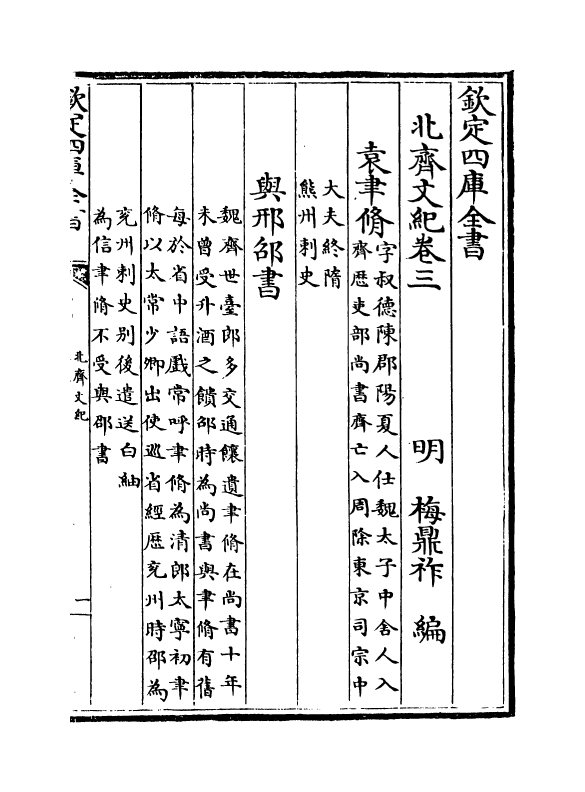 欽定四庫全書
北齊文紀卷三
明 梅鼎祚 編
袁聿脩字叔德陳郡陽夏人仕魏太子中舍人入
齊歴吏部尚書齊亡入周除東京司宗中
大夫終隋
熊州刺史
與邢邵書
魏齊世臺郎多交通饟遺聿脩在尚書十年
未曾受升酒之饋邵時為尚書與聿脩有舊
每於省中語戲常呼聿脩為清郎太寧初聿
脩以太常少卿出使巡省經歴兖州時邵為
兖州刺史别後遣送白紬
為信聿脩不受與邵書
欽定四庫全書
北齊文紀
一